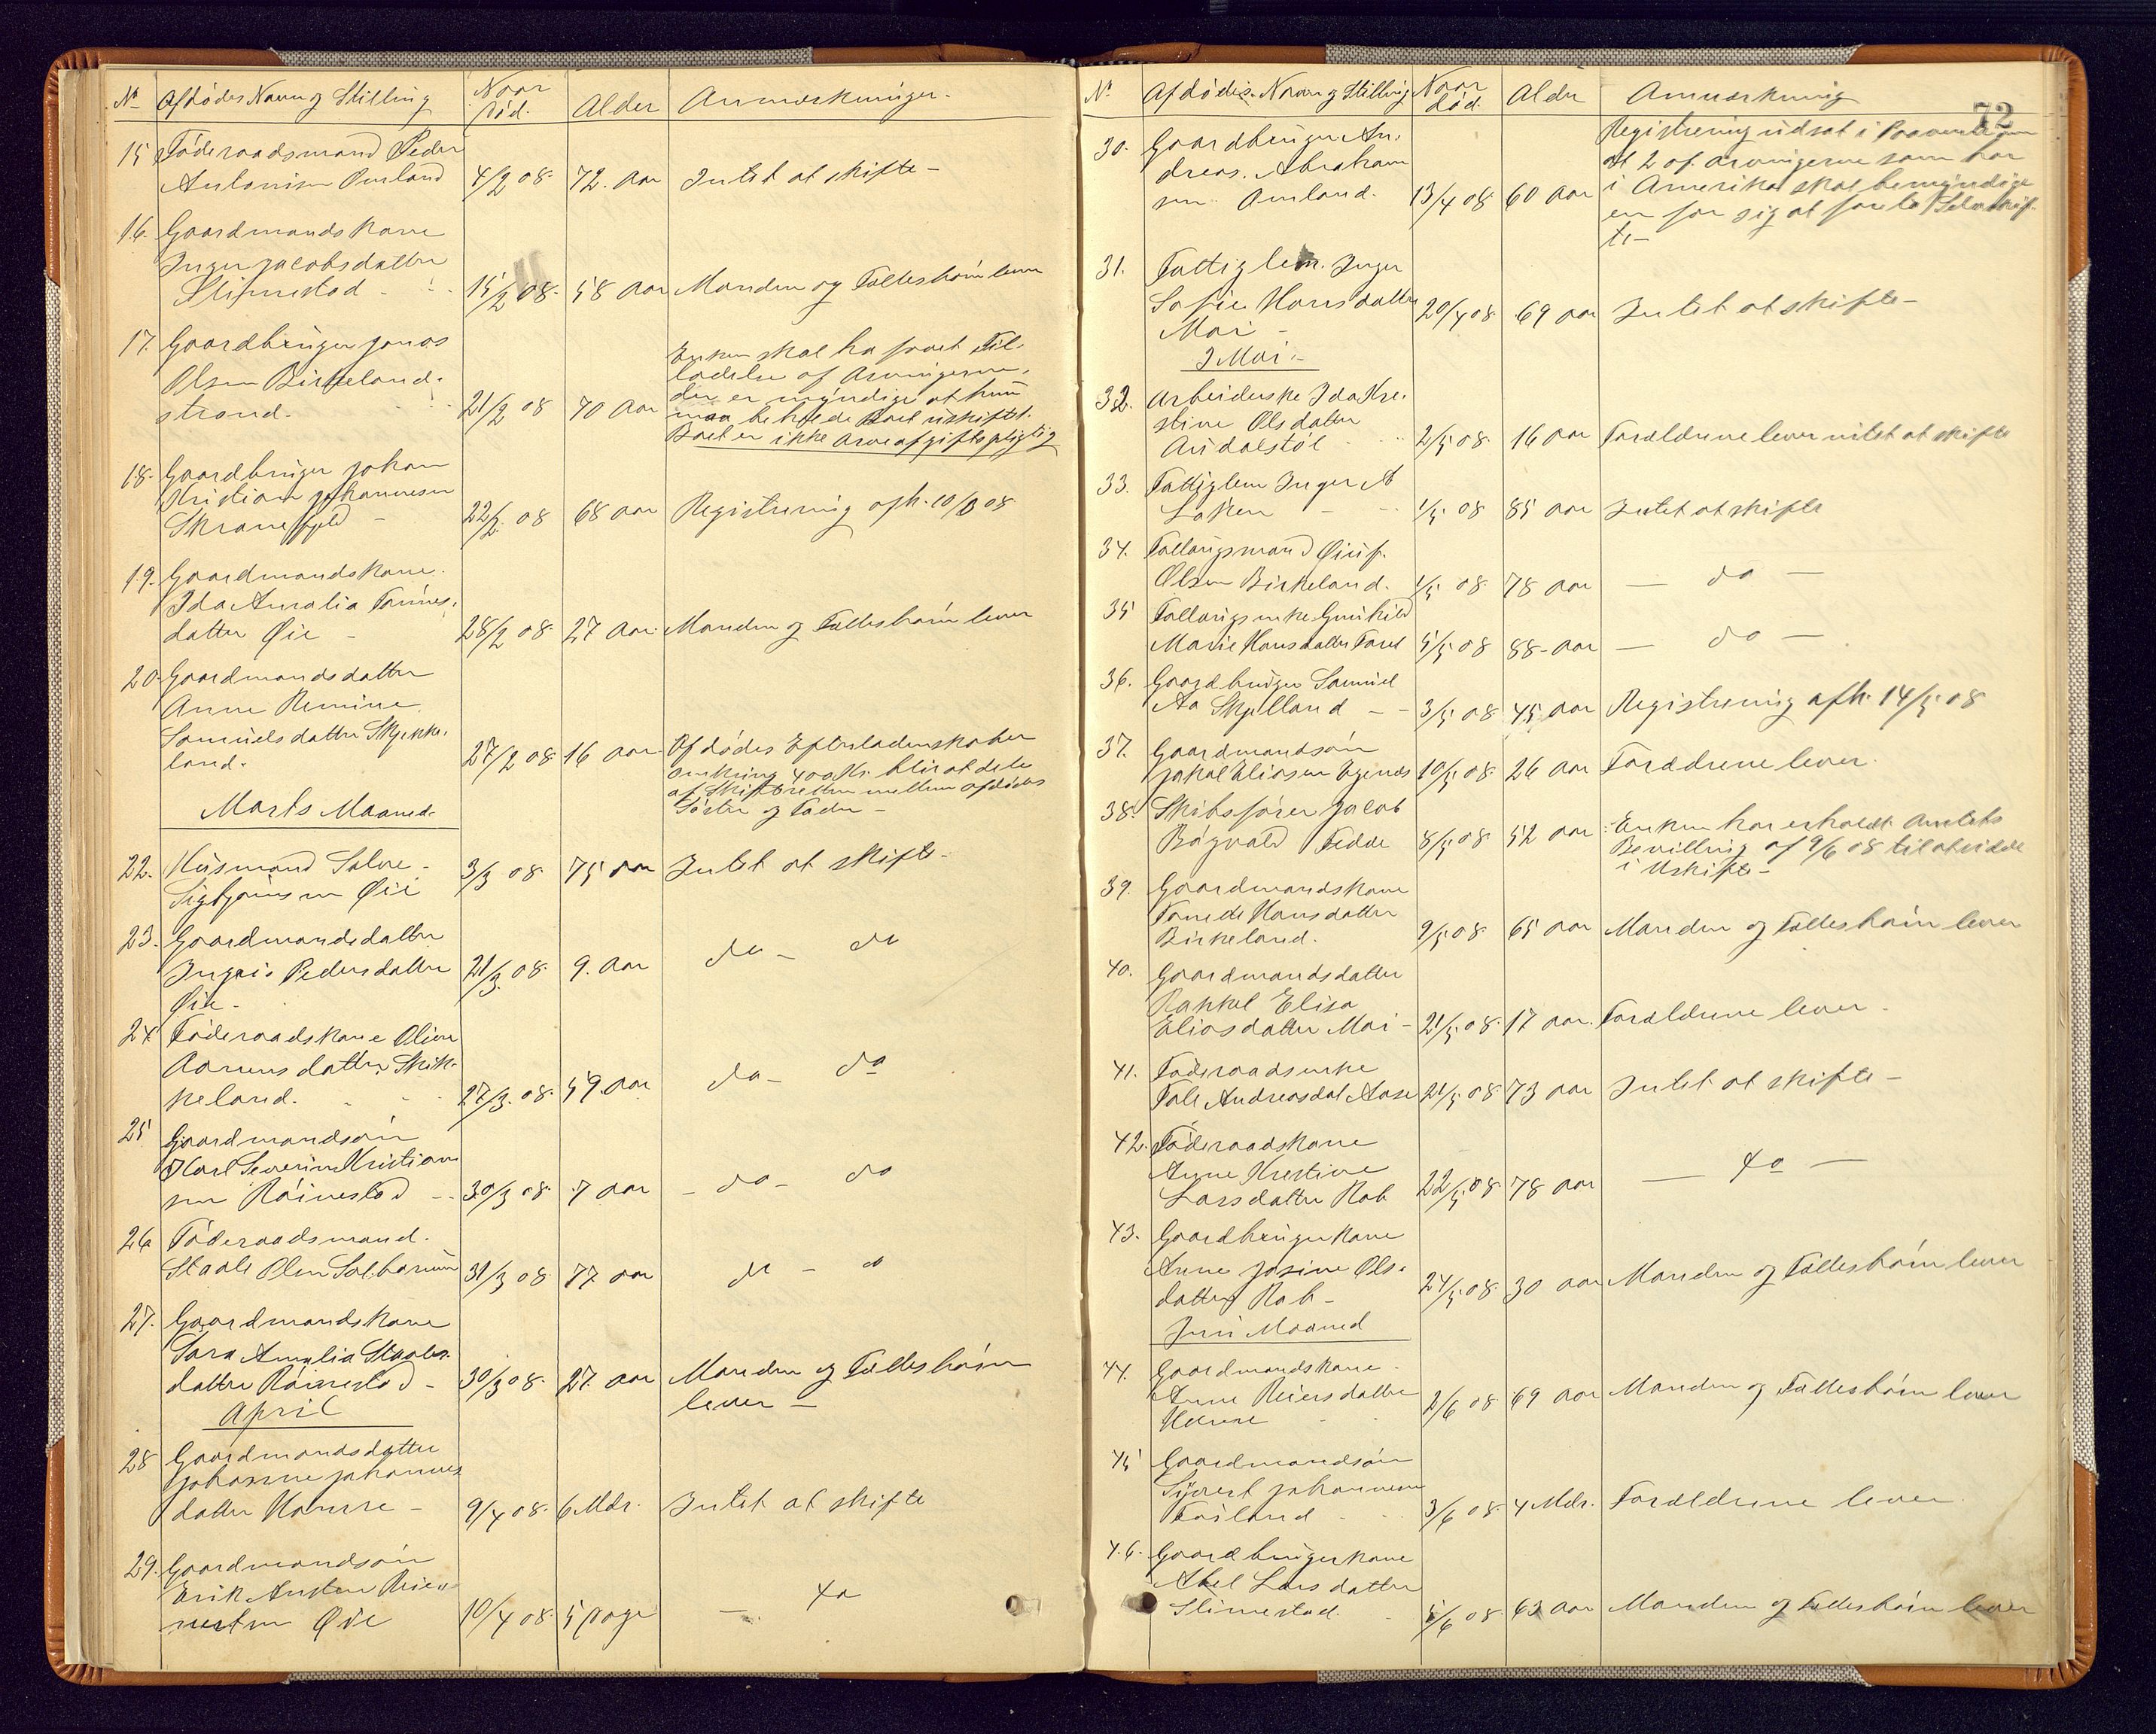 No Afdødes Navn og Stilling Naar død. Alder Anmærkninger.
15 Föderaadsmand Peder
Antonisen Omland 4/2 08. 72. Aar Intet at skifte -
16. Gaardmandskone
Inger Jacobsdatter
Stinnestad - 15/2 08. 58 Aar Manden og Fællesbörn lever
17. Gaardbruger Jonas
Olsen Birkeland.
strand. 21/2 08 70 Aar
Enken skal ha faaet Til-
ladelse af Arvingerne,
der er myndige at hun
maa beholde Boet uskiftet.
Boet er ikke arveafgiftspligtig
18. Gaardbruger Johan
Kristian Johannesen
Skranefjeld - 22/2. 08 68 aar Registrering afh. 10/3 08
19. Gaardmandskone.
Ida Amalia Tönnes.
datter Øie - 28/2 08. 27 Aar. Manden og Fællesbörn lever
20. Gaardmandsdatter
Anne Remine
Samuelsdatter Skjekke.
land. 27/2 08. 16 aar. Afdödes Efterladenskaber
omkring 400 Kr. blir at dele
af Skifteretten mellem afdödes
Söster og Fader -
Marts Maaned.
22. Husmand Salve -
Sigbjörnsen Øie 3/3 08. 75 aar Intet at skifte -
23. Gaardmandsdatter
Ingris Pedersdatter
Øie - 21/3. 08. 9. Aar do - do
24 Föderaadskone Oline
Aanensdatter Skik-
keland. 27/3. 08. 59. aar do - do
25 Gaardmandsön
Karl Severin Kristian
sen Röinestad - 30/3 08. 7 aar - do - do
26 Föderaadsmand.
Staale Olsen 31/3 08 77 aar do - do
27. Gaardmandskone
Sara Amalia Staales.
datter Röinestad - 30/3 08. 27 aar Manden og Fællesbörn
lever -
April
28 Gaardmandsdatter
Johanne Johannes
datter - 9/4 08. 6 Mdr. Intet at skifte
29. Gaardmandsön
Erik Reier
Øie 10/4 08. 5 Dage - do
72
No Afdödes. Navn og Stilling Naar död. Alder Anmærkning
30. Gaardbruger An.
dreas. Abraham
sen Omland. 13/4 08. 60 aar
Registrering udsat i Paavente om
at 2 af arvingerne som bor
i Amerika skal bemyndige
en for sig at foreta Selvskif-
te -
31. Fattiglem. Inger
Sofie Hansdatter
Moi - 20/4 08 69 aar Intet at skifte -
I Mai.
32. Arbeiderske Ida Kre.
stine Olsdatter
2/5 08. 16 aar Forældrene lever intet at skifte
33. Fattiglem Inger A
Laken 1/5 08 85 aar Intet at skifte
34. Follaugsmand
Olsen Birkeland. 1/5 08. 78 aar - do -
35 Follaugsenke Gunhild
Marie Hansdatter 5/5 08 88 - aar - do -
36. Gaardbruger Samuel
Aa Skjelland - 3/5 08 45 aar Registrering afh. 14/5 08
37. Gaardmandsön
Jakob Eliasen Egenes 10/5 08. 26 aar Forældrene lever.
38. Skibsförer Jacob
Bögvald Fedde 8/5 08 52 aar Enken har erholdt Amtets
Bevilling af 9/6 08 til at sidde
i Uskifte -
39. Gaardmandskone
Hansdatter
Birkeland. 9/5 08 65 aar Manden og Fællesbörn lever
40. Gaardmandsdatter
Rakkel Elisa
Eliasdatter Moi - 21/5 08. 17 aar. Forældrene lever -
41. Föderaadsenke
Tale Andreasdat Aase 21/5 08 73 aar Intet at skifte -
42. Föderaadskone
Anne Kristine
Larsdatter Rob 22/5 08 78 aar - do -
43. Gaardbrugerkone
Anne Josine Ols.
datter Rob - 24/5 08. 30 aar Manden og Fællesbörn lever
Juni Maaned
44. Gaardmandskone.
Anne Reiersdatter
2/6 08 69 aar Manden og Fællesbörn lever
45 Gaardmandsön
Syvert Johannesen
3/6 08. 4 Mdr. Forældrene lever.
46. Gaardbrugerkone
Abel Larsdatter
Stinnestad. 5/6 08. 62 aar Manden og Fællesbörn lever